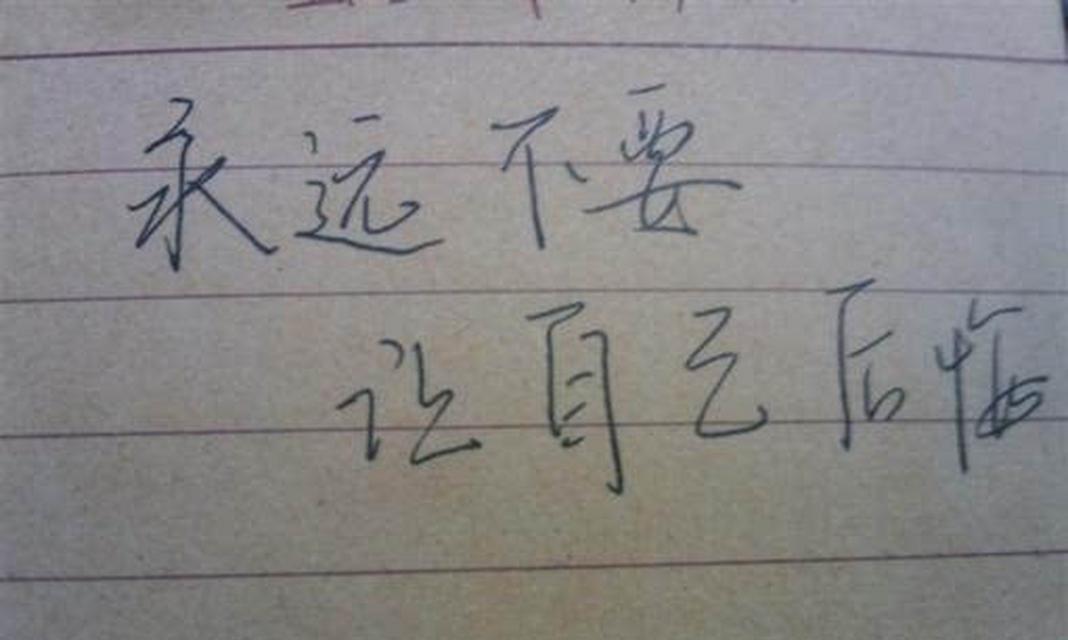 永远不要
让自己后悔